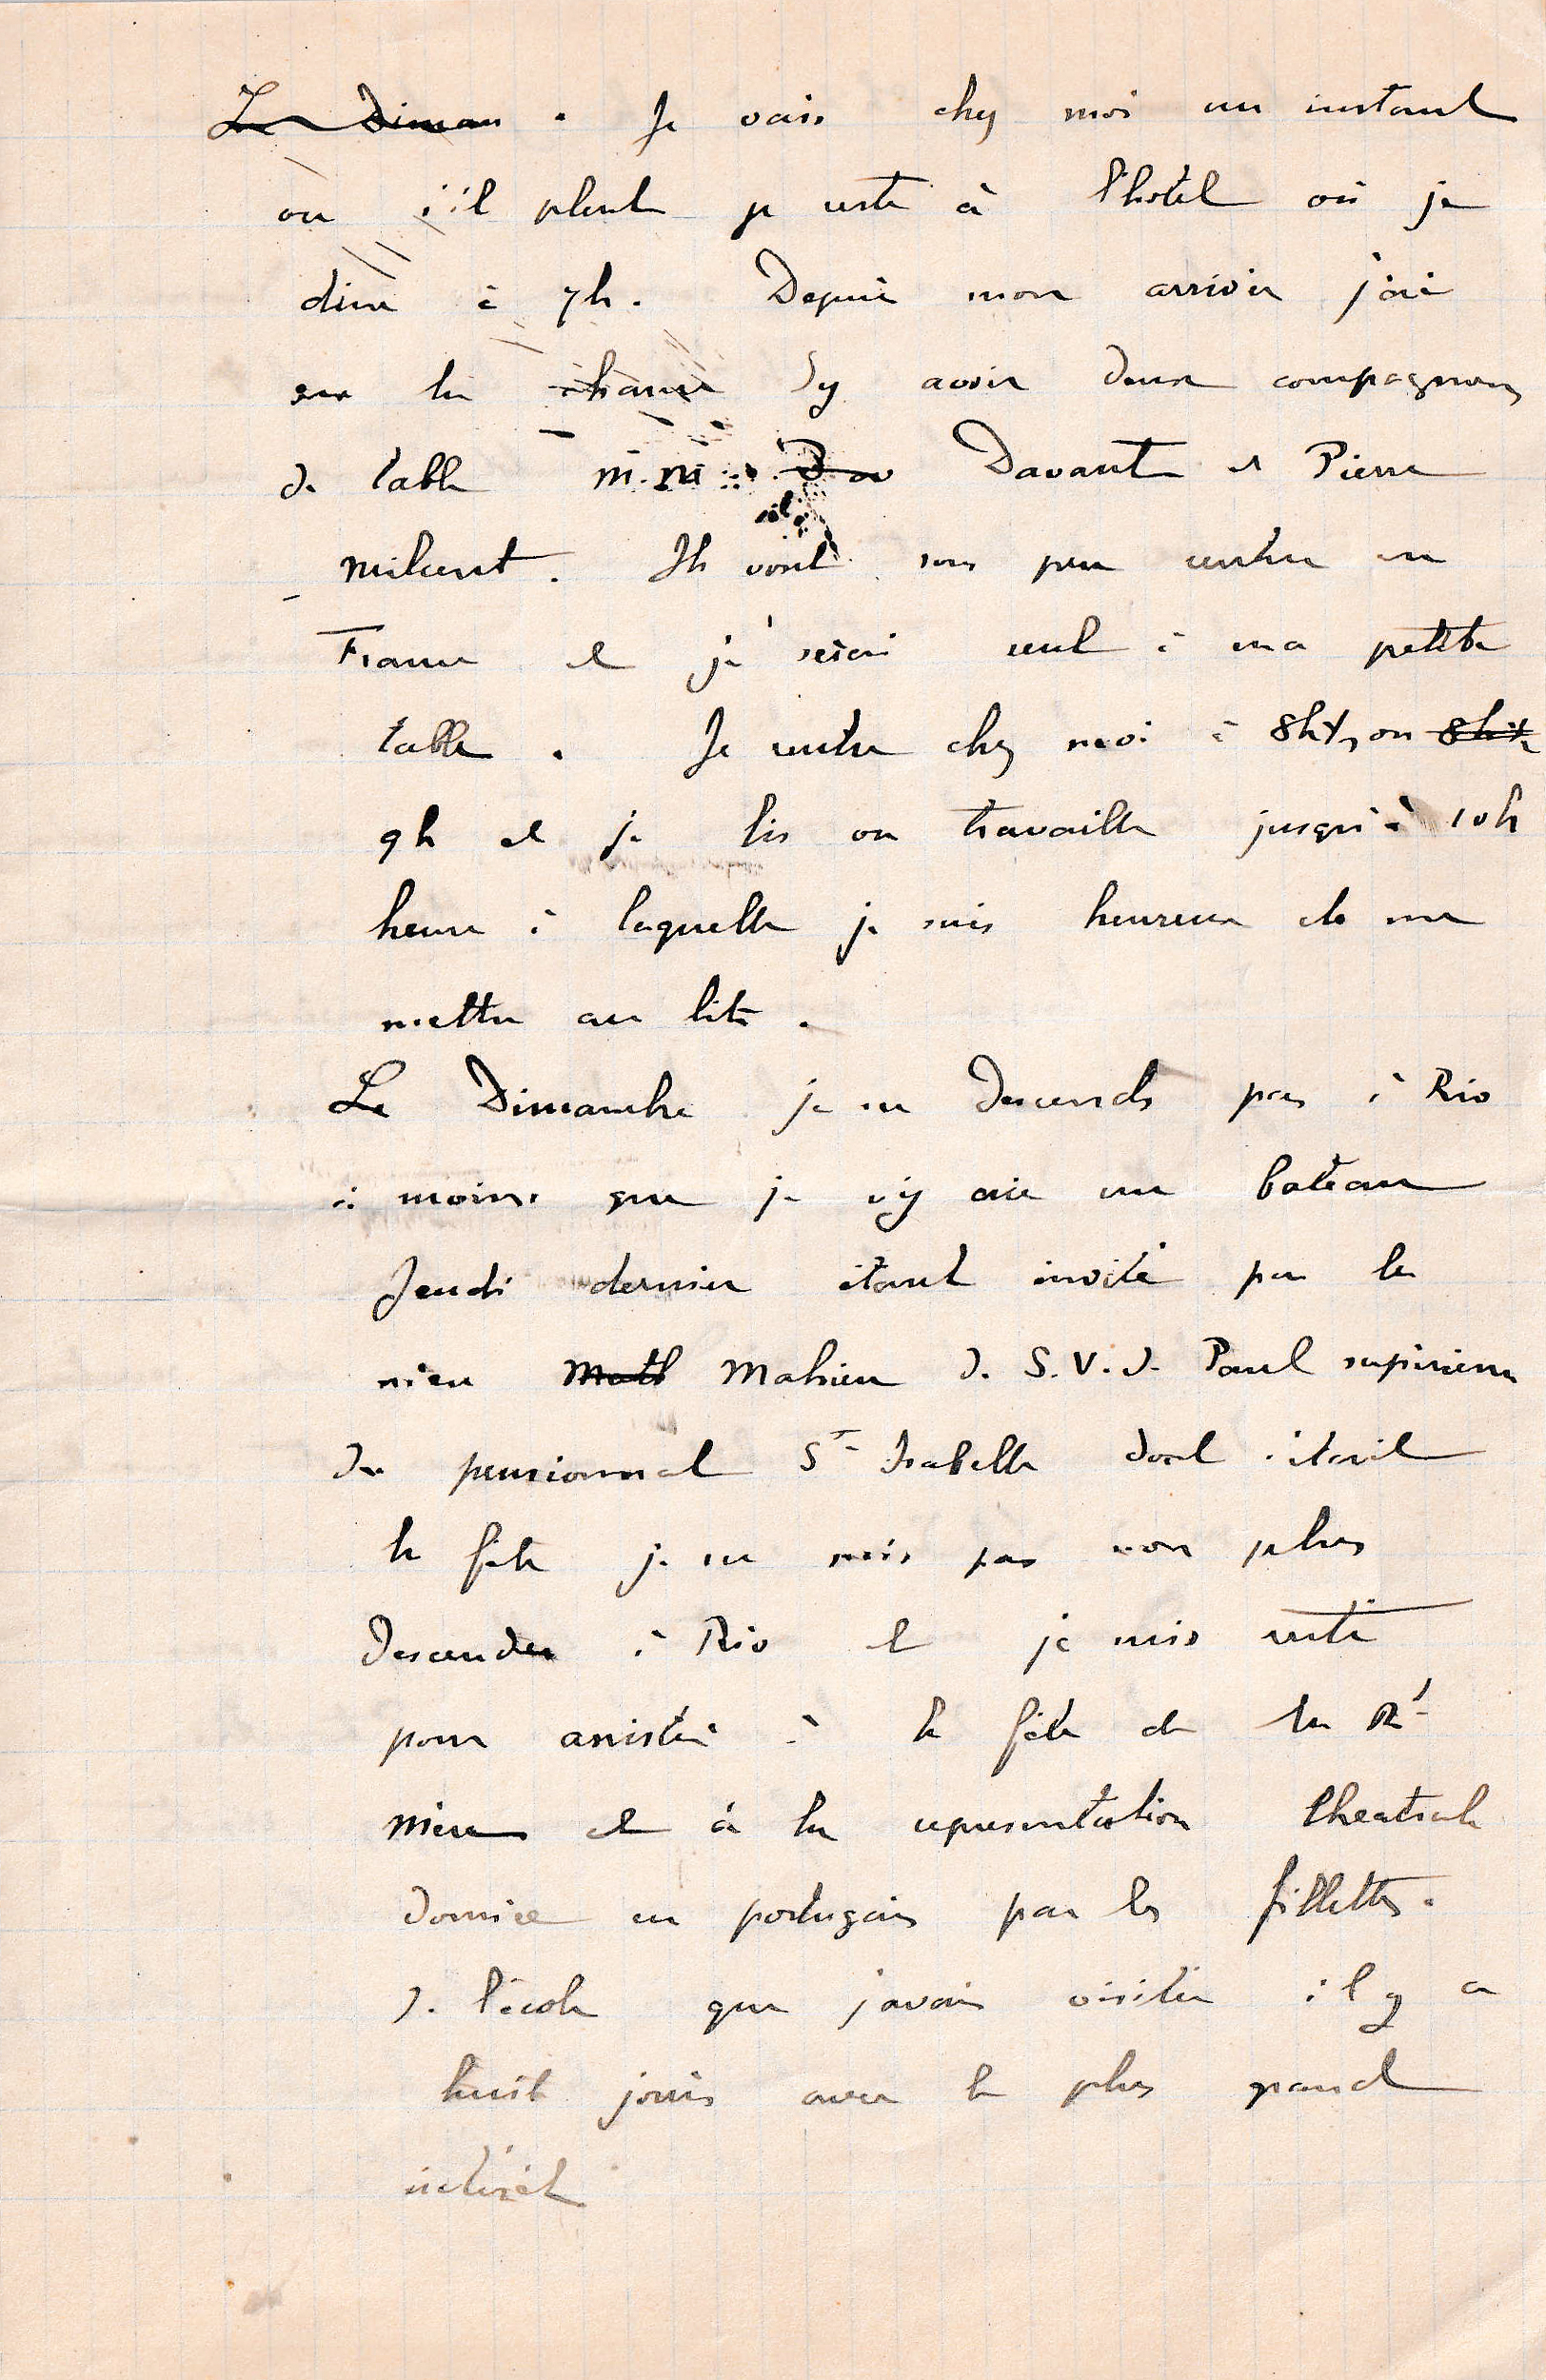 Le Diman. Je vais chez moi un instant
ou s'il pleut je reste à l'hotel où je
dine à 7h. Depuis mon arrivée j'ai
eu la chance d'y avoir deux compagnons
de table M.M. Da Davant et Pierre
Ils vont sous peu rentrer en
France et je serai seul à ma petite
table. Je rentre chez moi à 8h½ ou 8h½
9h et je lis ou travaille jusqu'à 10h
heure à laquelle je suis heureux de me
mettre au lit.
Le Dimanche je ne descends pas à Rio
à moins que je n'y aie un bateau
Jeudi dernier étant invité par la
mère Math Mahieu de S.V.d. Paul supérieure
du pensionnat Ste Isabelle dont c'était
la fête je ne suis pas non plus
descendu à Rio et je suis resté
pour assister à la fête de la Rde
mère et à la representation theatrale
donnée en portugais par les fillettes
de l'école que j'avais visitée il y a
huit jours avec le plus grand
intérêt